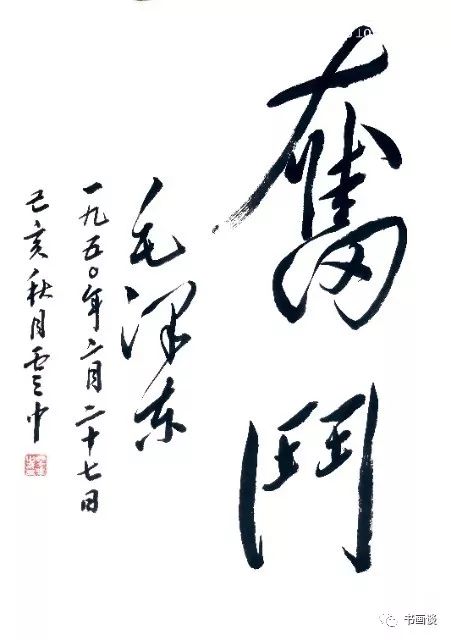 奮鬥
毛泽东
一九五〇年二月二十七日
己亥秋月雲中
书画谈